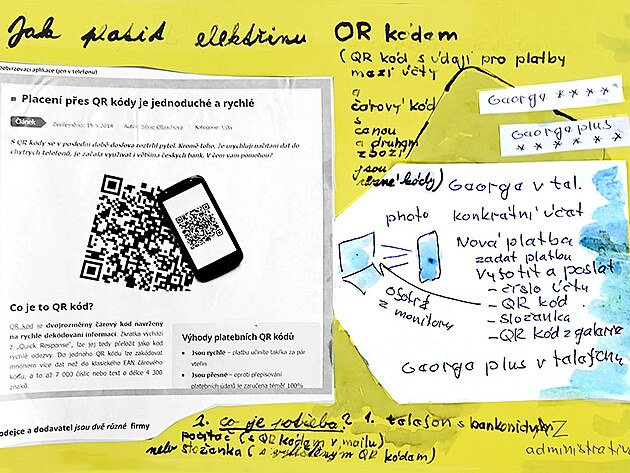 Jak platit elektřinu QR kódam
(QR kód s údaji pro platby
mezi účty
a
čárový kód
s
canou
a druham
zboží
jsou
různé kódy)
Gaorga * * * *
Gaorga plus
* * * * * *
obrizovací aplikace (jen v telefonu)
Placení přes QR kódy je jednoduché a rychlé
Článek Zveřejněno: 15.5.2014 Autor: Kategorie:
S QR kódy se v poslední době doslova roztrhl pytel. Kromě toho, že urychlují načítání dat do
chytrých telefonů, je začala využívat i většina českých bank. V čem vám pomohou?
Co je to QR kód?
QR kód je dvojrozměrný čárový kód navržený
na rychlé dekódování informací. Zkratka vychází
z „Quick Response“, lze jej tedy přeložit jako kód
rychlé odezvy. Do jednoho QR kódu lze zakódovat
mnohem více dat než do klasického EAN čárového
kódu, a to až 7 000 číslic nebo text o délce 4 300
znaků.
Výhody platebních QR kódů
Jsou rychlé – platbu učiníte takřka za pár
vteřin
Jsou přesné – oproti přepisování
platebních údajů je zaručena téměř 100%
Gaorga v tal.
photo konkrátní účat
Nová platba
zadat platbu
Vyfotit a poslat
- číslo účtu
- QR kód
- složanka
- QR kód z galaria
ofotit
z monitoru
Gaorga plus v talafonu
rodejce a dodavatel jsou dvě různé firmy
2. co je potřeba? 1. talafon s bankovnictvím
počítač (s QR kódam v mailu)
nebo složanka (s vytištěným QR kódam)
administrativa